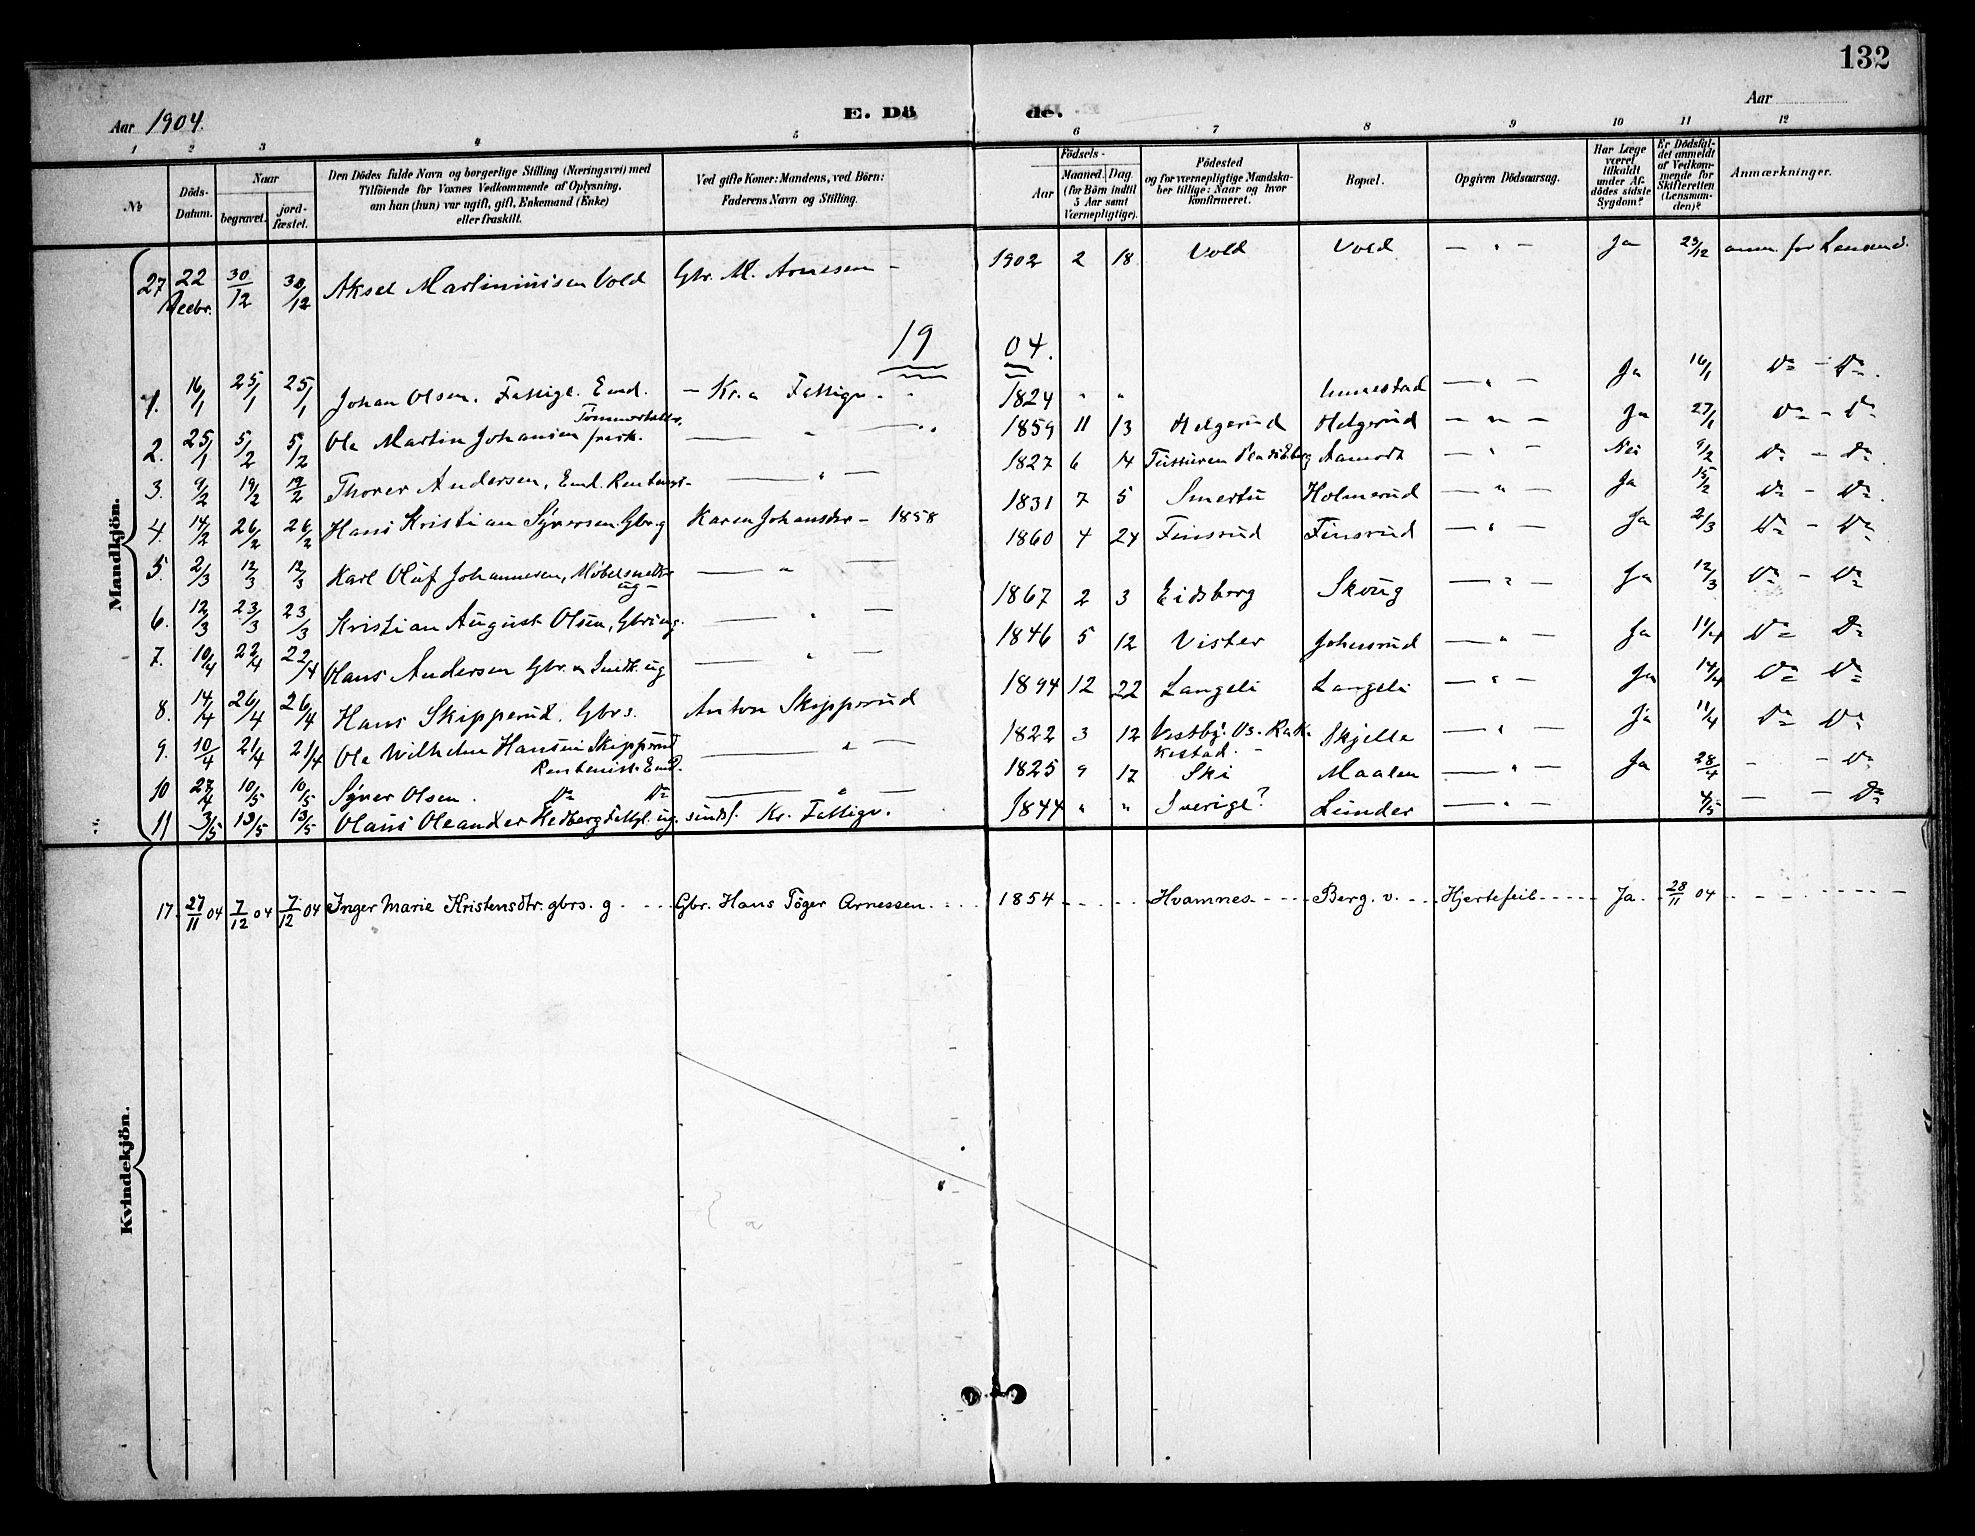 132
Aar 1904.
E. Dö de.
Aar
1 2 3 4 5 6 7 8 9 10 11 12
№
Döds-Datum.
Naar
begravet.
jord-fæstet.
Den Dödes fulde Navn og borgerlige Stilling (Næringsvei) med Tilföiende for Voxnes Vedkommende af Oplysning, om han (hun) var ugift, gift, Enkemand (Enke) eller fraskilt.
Ved gifte Koner: Mandens, ved Börn: Faderens Navn og Stilling.
Födsels-
Aar
Maaned. Dag. (for Börn indtil 5 Aar samt Værnepligtige).
Födested og for værnepligtige Mandska-ber tillige: Naar og hvor konfirmeret.
Bopæl.
Opgiven Dödsaarsag.
Har Læge været tilkaldt under Af-dödes sidste Sygdom?
Er Dödsfal-det anmeldt af Vedkom-mende for Skifteretten (Lensman-den)?
Anmærkninger.
Mandkjön.
27 22 Decbr. 30/12 30/12 Aksel Martiniusen Vold Gbr. M. Arnesen - 1902 2 18 Vold Vold — " — Ja 23/12 anm. for Lensmd.
19 04.
1. 16/1 25/1 25/1 Johan Olsen. Fattigl. Emd. - Kr.a Fattigv. 1824 " " Ja 16/1 Do - Do.
2. 25/1 5/2 5/2 Ole Martin Johansen Tømmerhandlr. — " — 1859 11 13 Helgerud Helgerud — " — Ja 27/1 Do - Do
3. 9/2 19/2 19/2 Thorer Andersen, Emd. — " — 1827 6 14 Aamodt — " — Nei 9/2 Do - Do
4. 14/2 26/2 26/2 Hans Kristian Syversen Gbr. g Karen Johansdtr - 1858 1831 7 5 Smertu Holmerud — " — Ja 15/2 Do - Do.
5. 2/3 12/3 12/3 Karl Oluf Johannesen, Møbelsnedkr ug - — " — 1860 4 24 Finsrud Finsrud — " — Ja 2/3 Do - Do
6. 12/3 23/3 23/3 Kristian August Olsen, Gbr. ug. — " — 1867 2 3 Eidsberg Skoug — " — Ja 12/3 Do - Do
7. 10/4 22/4 22/4 Hans Andersen Gbr. & Smed. ug — " — 1846 5 12 Vister Johnsrud — " — Ja 11/4 Do Do
8. 14/4 26/4 26/4 Hans Skipperud. Gbrs. Anton Skipperud 1894 12 22 Langeli Langeli — " — Ja 14/4 Do Do
9. 10/4 21/4 21/4 Ole Wilhelm Hansen Skipperud Rentenist. Emd. — " — 1822 3 12 Vestby. Skjelle — " — Ja 11/4 Do Do
10 27/4 10/5 10/5 Syver Olsen. Do Do — " — 1825 9 17 Ski Maalen — " — Ja 28/4 - - Do
11 3/5 13/5 13/5 Olaus Oleander Hedberg Fattgl. ug. sindsf. Kr. Fattigv. 1844 " " Sverige? Lunder — " — 4/5 — - Do
Kvindekjön.
17. 27/11 04 7/12 04 7/12 04 Inger Marie Kristensdtr. gbrs. g Gbr. Hans Töger Arnessen. 1854 Hvamnes Berg. v. Hjertefeil Ja. 28/11 04